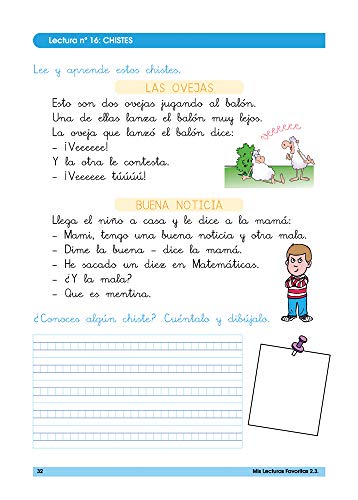 Lectura nº 16: CHISTES
Lee y aprende estos chistes.
LAS OVEJAS
Esto son dos ovejas jugando al balón.
Una de ellas lanza el balón muy lejos.
La oveja que lanzó el balón dice:
- ¡Veeeeee!
Y la otra le contesta.
- ¡Veeeeee túúúú!
veeeeee
BUENA NOTICIA
Llega el niño a casa y le dice a la mamá:
- Mami, tengo una buena noticia y otra mala.
- Dime la buena - dice la mamá.
- He sacado un diez en Matemáticas.
- ¿Y la mala?
- Que es mentira.
¿Conoces algún chiste? .Cuéntalo y dibújalo.
32
Mis Lecturas Favoritas 2.3.